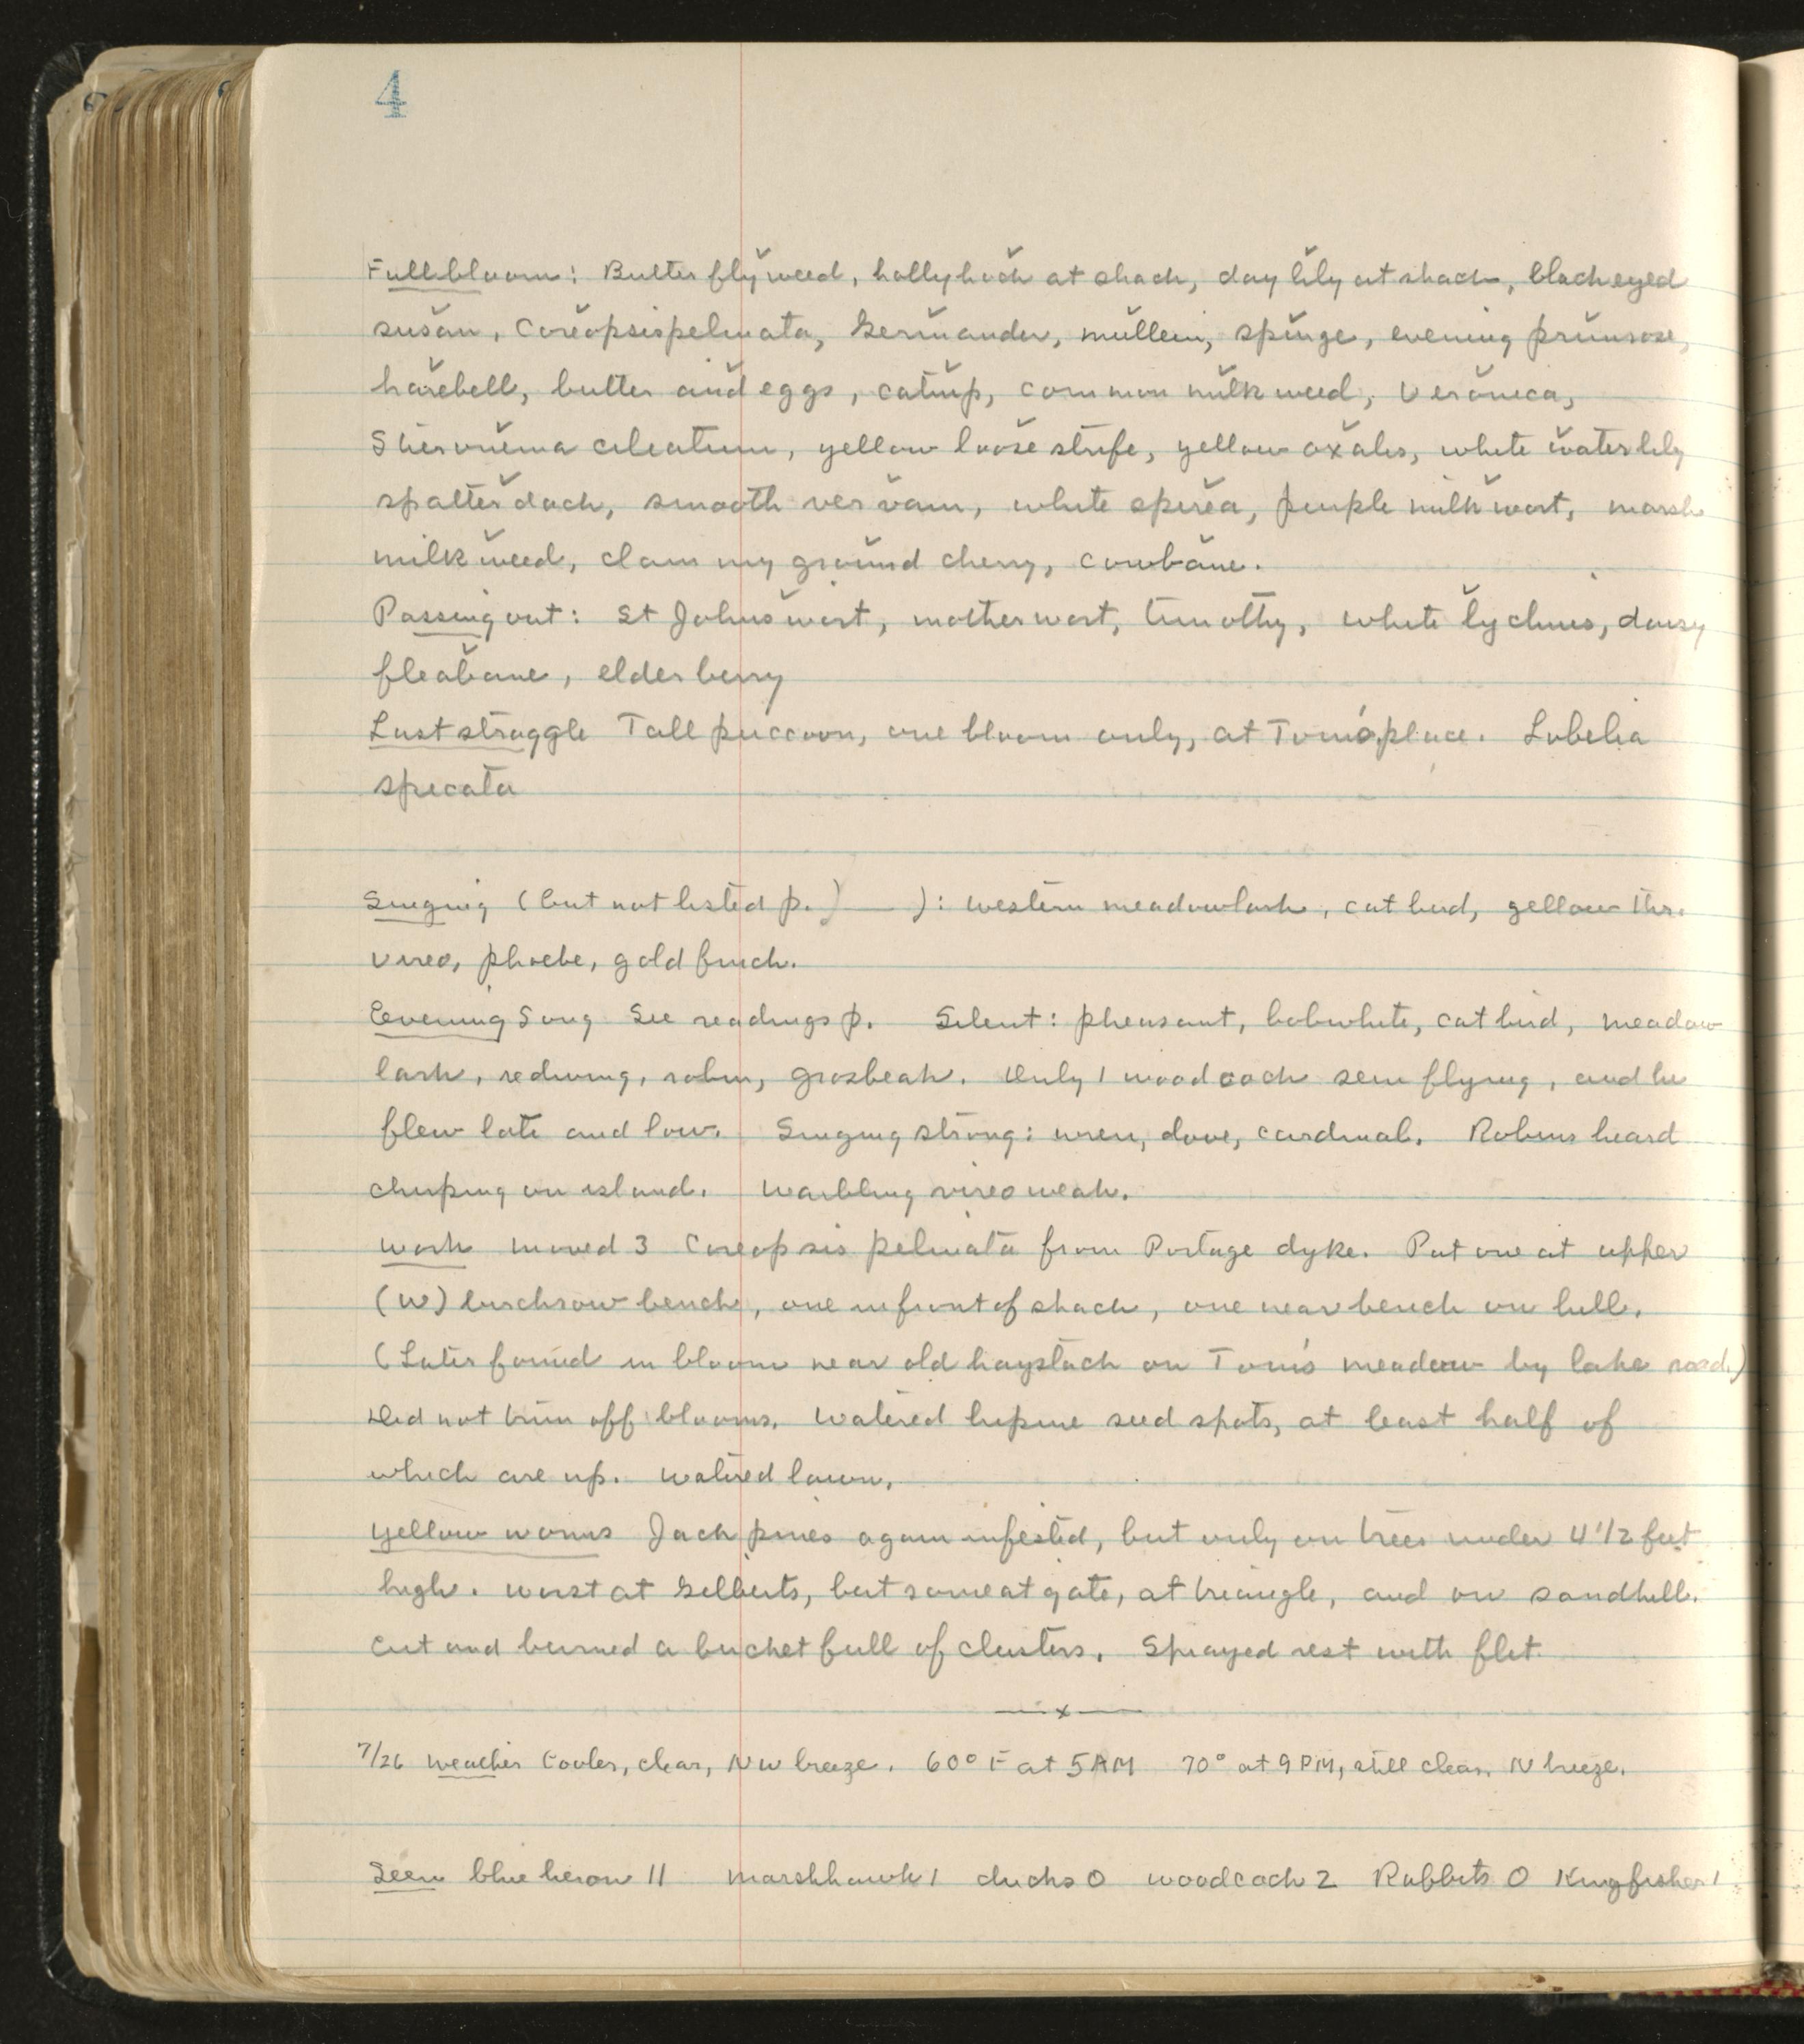 4
Full bloom: Butterfly weed, hollyhock at shack, day lily at shack, blackeyed
susan, Coreopsis pelmata, Germander, mullein, spurge, evening primrose,
harebell, butter and eggs, catnip, common milkweed, Veronica,
Steironema ciliatum, yellow loosestrife, yellow oxalis, white waterlily
spatterdock, smooth vervain, white spirea, purple milkwort, marsh
milkweed, clammy ground cherry, cowbane.
Passing out: St Johnswort, motherwort, timothy, white lychnis, daisy
fleabane, elderberry
Last straggle Tall puccoon, one bloom only, at Tom's place. Lobelia
spicata
Singing (but not listed p. ) ): western meadowlark, catbird, yellow thr.
vireo, phoebe, goldfinch.
Evening Song See readings p. Silent: pheasant, bobwhite, catbird, meadow
lark, redwing, robin, grosbeak. Only 1 woodcock seen flying, and he
flew late and low. Singing strong: wren, dove, cardinal. Robins heard
chirping on island. Warbling vireo weak.
Work Moved 3 Coreopsis pelmata from Portage dyke. Put one at upper
(W) birchrow bench, one in front of shack, one near bench on hill.
(Later found in bloom near old haystack on Tom's meadow by lake road.)
Did not trim off blooms. Watered lupine seed spots, at least half of
which are up. Watered lawn.
Yellow worms Jack pines again infested, but only on trees under 4 1/2 feet
high. Worst at Gilberts, but some at gate, at triangle, and on sandhill.
Cut and burned a bucket full of clusters. Sprayed rest with flit.
x
7/26 Weather Cooler, clear, NW breeze. 60° F at 5 AM 70° at 9 PM, still clear, N breeze.
Seen blue heron 11 marshhawk 1 ducks 0 woodcock 2 Rabbits 0 Kingfisher 1